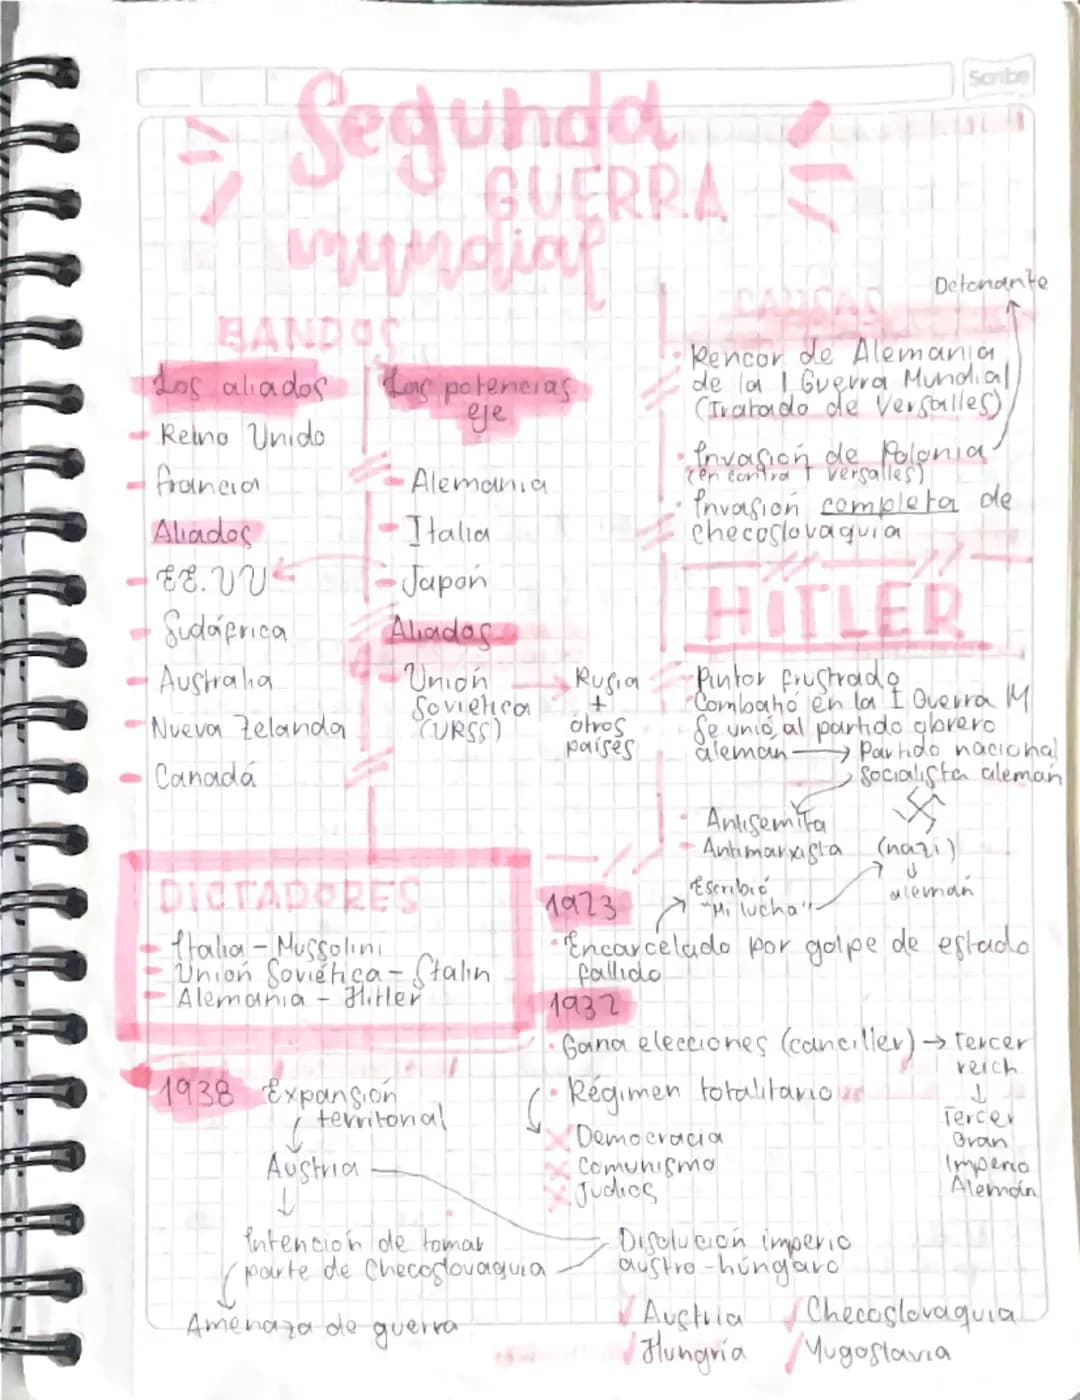 Scribe
Segunda
GUERRA
mundial
BANDOS
Los aliados
- Reino Unido
- Francia
Aliados
- EE.UU
- Sudáfrica
- Australia
- Nueva Zelanda
- Canadá
Las potencias
eje
- Alemania
- Italia
- Japón
Aliados
- Unión
Soviética
(URSS)
Rusia
+
otros
países
CAUSAS
Detonante
· Rencor de Alemania
de la I Guerra Mundial
(Tratado de Versalles)
· Invasión de Polonia
(en contra T versalles)
· Invasión completa de
Checoslovaquia
HITLER
- Pintor frustrado
- Combatió en la I Guerra M
- Se unió al partido obrero
alemán → Partido nacional
socialista alemán
- Antisemita
- Antimarxista
(nazi)
↓
alemán
Escribió
"Mi lucha"
DICTADORES
- Italia - Mussolini
- Unión Soviética - Stalin
- Alemania - Hitler
1923
· Encarcelado por golpe de estado
fallido
1932
· Gana elecciones (canciller) → Tercer
reich
↓
Tercer
Gran
Imperio
Alemán
· Régimen totalitario
X Democracia
X Comunismo
X Judios
1938 Expansión
territorial
↓
Austria
↓
Intención de tomar
parte de Checoslovaquia
Amenaza de guerra
Disolución imperio
austro-húngaro
/ Austria / Checoslovaquia
/ Hungría / Yugoslavia